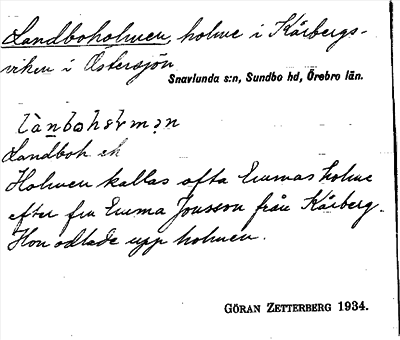 Landboholmen, holme i Kårbergs-
viken i Östersjön
Snavlunda s:n, Sundbo hd, Örebro län.
Landboh ek
Holmen kallas ofta Emmas holme
efter fru Emma Jonsson från Kårberg.
Hon odlade upp holmen.
GÖRAN ZETTERBERG 1934.